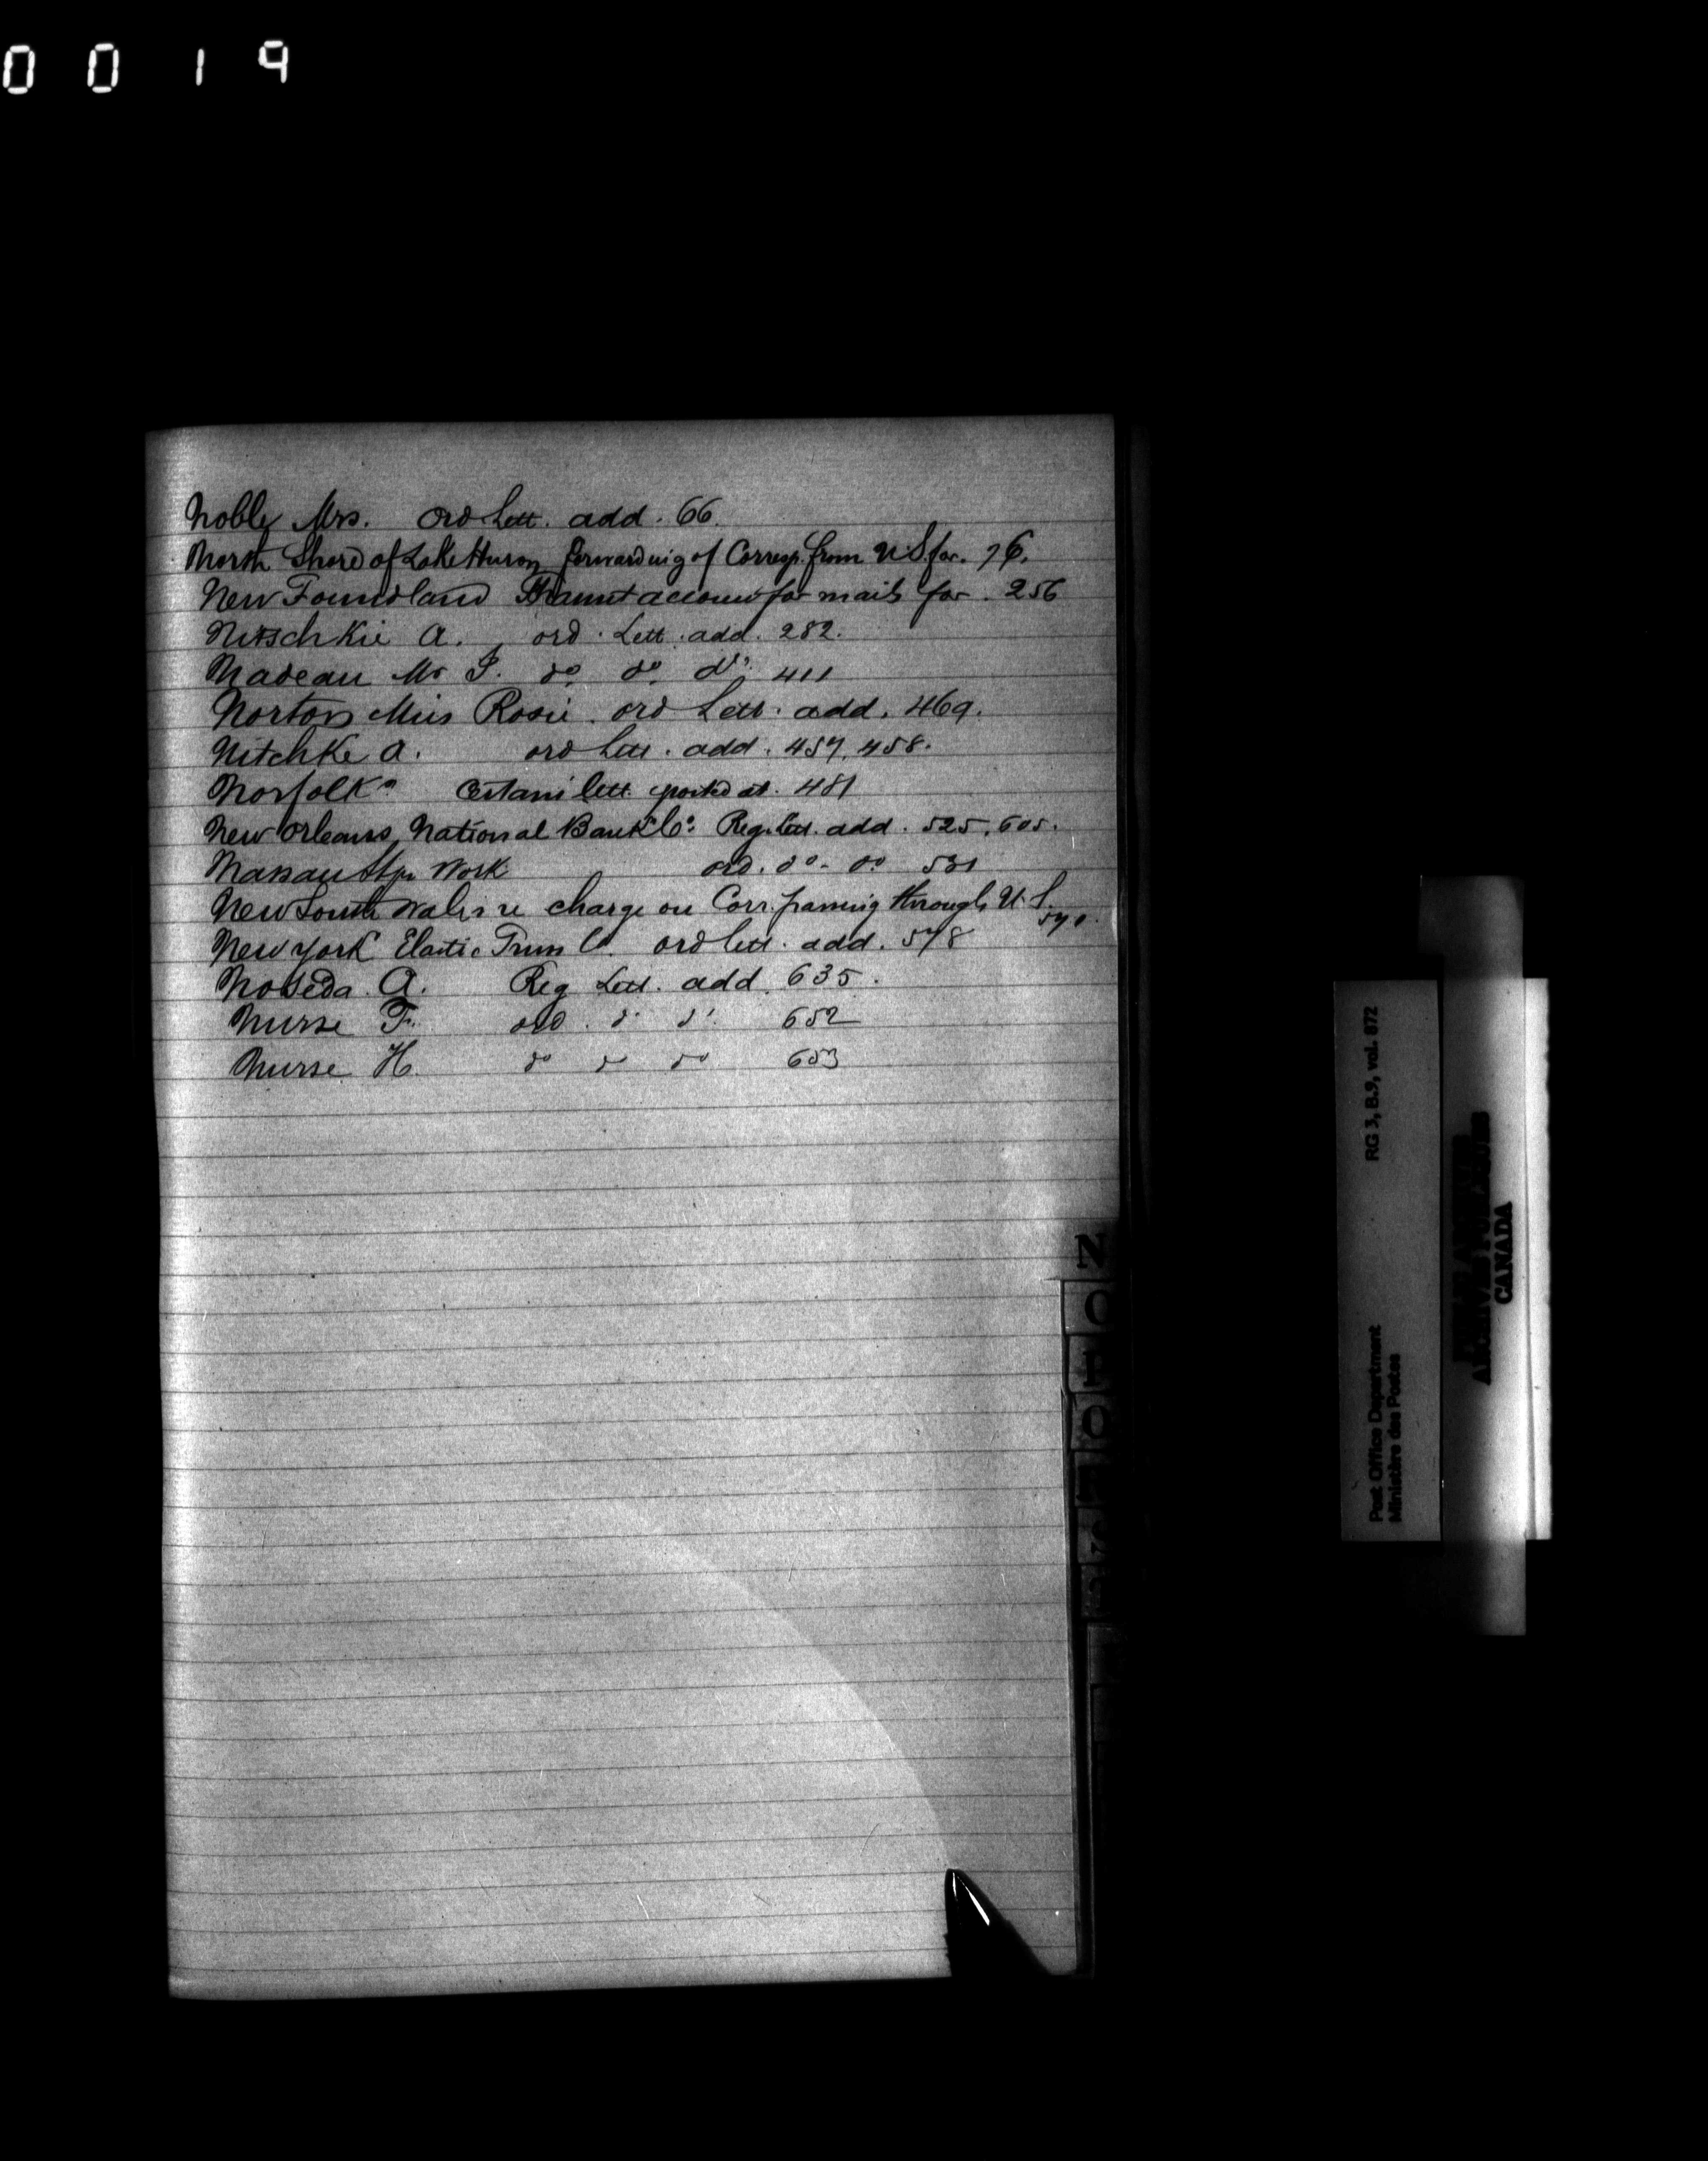 0 0 1 9
Noble Mrs. Ord Lett. add. 66.
North Shore of Lake Huron forwarding of Corresp. from U.S. for. 76.
New Foundland Transit account for mails for. 256
Nitschkie A. ord. Lett. add. 282.
Nadeau Mr J. do do do 411
Norton Miss Rosie. ord Lett. add. 469.
Nitchke A. ord Lett. add. 457. 458.
Norfolk Certain lett. posted at. 481
New Orleans National Bank Co: Reg. Lett. add. 525. 605.
Nassau Stn Work ord. do. do 531
New South Wales re charge on Corr. passing through U.S.
570.
New York Elastic Truss Co. ord lett. add. 578
Noseda A. Reg Lett. add. 635.
Nurse F. ord. do do 652
Nurse H. do do do 653
N
O
Q
RG 3, B.9, vol. 872
Post Office Department
Ministère des Postes
CANADA